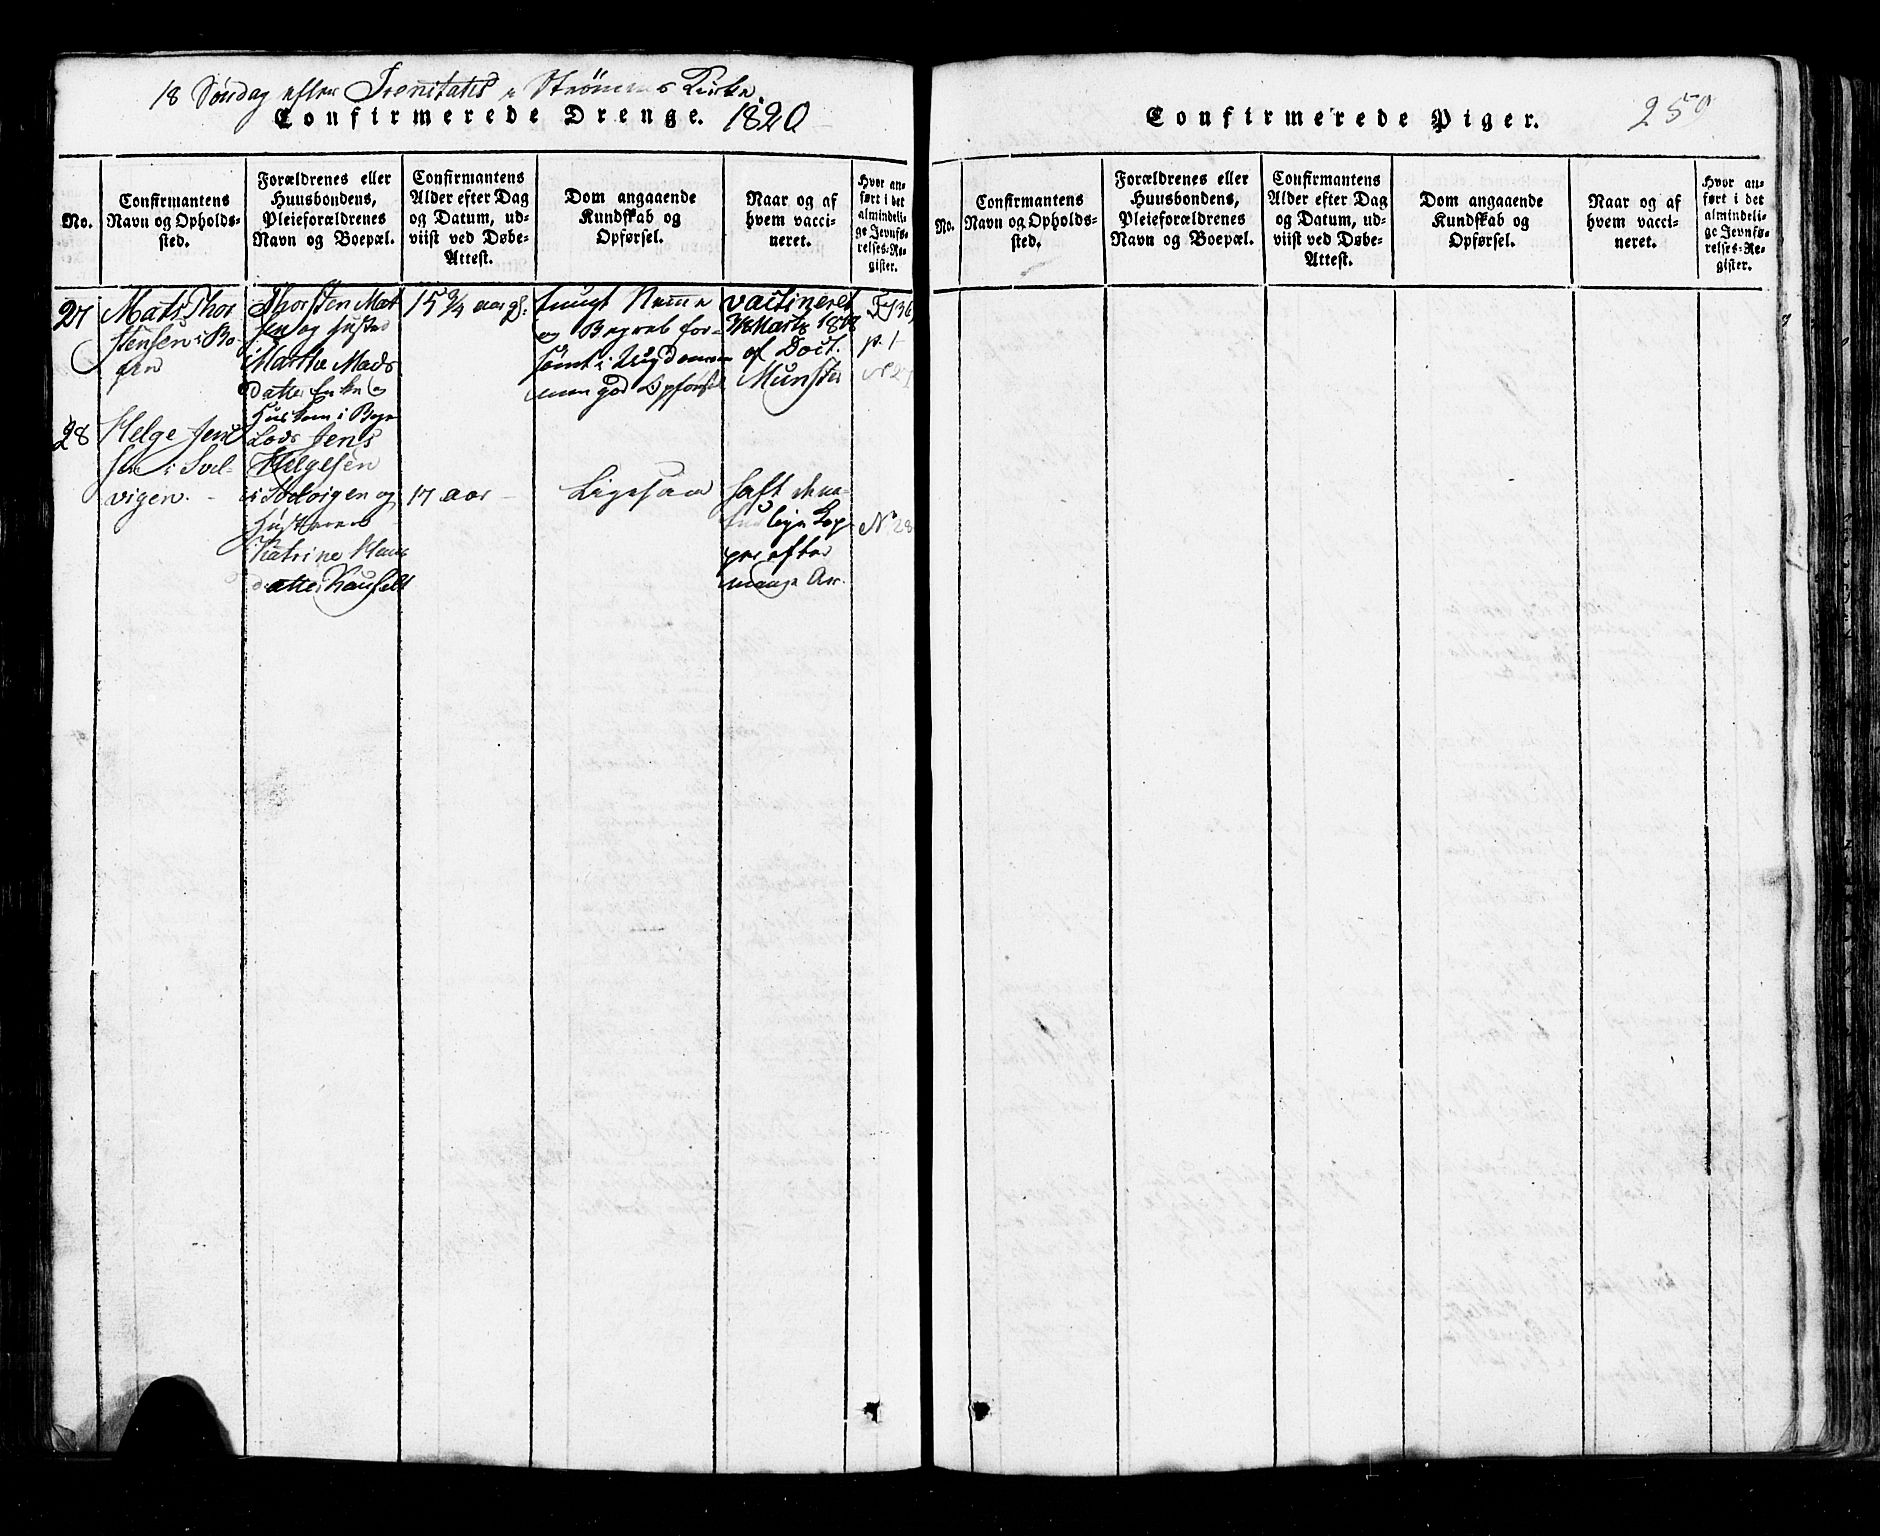 18 Søndag efter Trenitatis i Strømms Kirke
Confirmerede Drenge. 1820
No.
Confirmantens
Navn og Opholds-
sted.
Forældrenes eller
Huusbondens,
Pleieforældrenes
Navn og Boepæl.
Confirmantens
Alder efter Dag
og Datum, ud-
viist ved Døbe-
Attest.
Dom angaaende
Kundskab og
Opførsel.
Naar og af
hvem vacci-
neret.
Hvor an-
ført i det
almindeli-
ge Jevnfø-
relses-Re-
gister.
27
Mats Thor
stensen i Bo
Thorsten Mat
sen og Hustrue
Marthe Mads
datter
15 3/4 aar gl:
tungt Nemme
og Begreb for-
sømt i Ungdommen
men god Opførsel
vaccineret
Marts 1818
af Doct.
Munster
p. 1
No 27
28
Helge Jen
sen i Svel-
vigen.
Lods Jens
Helgesen
i Svelvigen og
Hustrue
Katrine Hans
datter
17 aar
Ligesaa
haft de na-
turlige Kop-
per efter
mange Aar.
No 28
Confirmerede Piger.
250
No.
Confirmantens
Navn og Opholds-
sted.
Forældrenes eller
Huusbondens,
Pleieforældrenes
Navn og Boepæl.
Confirmantens
Alder efter Dag
og Datum, ud-
viist ved Døbe-
Attest.
Dom angaaende
Kundskab og
Opførsel.
Naar og af
hvem vacci-
neret.
Hvor an-
ført i det
almindeli-
ge Jevnfø-
relses-Re-
gister.